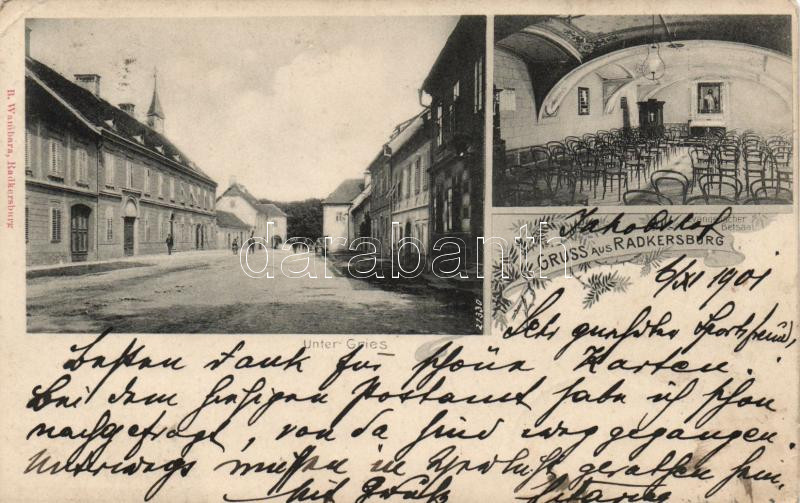 B. Wambara, Radkersburg
Unter Gries
21330
Evangelischer
Betsaal
GRUSS AUS RADKERSBURG
darabanth
Jakobhof
6/XI 1901
Sehr geehrter Sportsfreund,
besten Dank für schöne Karten.
Bei dem hiesigen Postamt habe ich schon
nachgefragt, von da sind weggegangen.
Unterwegs müssen in Verlust geraten sein.
Mit Gruß